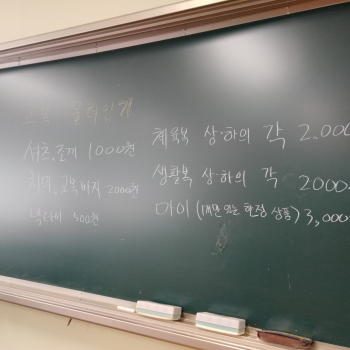 교복 물려입기
셔츠, 조끼 1000원
치마, 교복바지 2000원
넥타이 500원
체육복 상·하의 각 2.000
생활복 상·하의 각 2000
마이 (재만 있는 한정 상품) 3,000